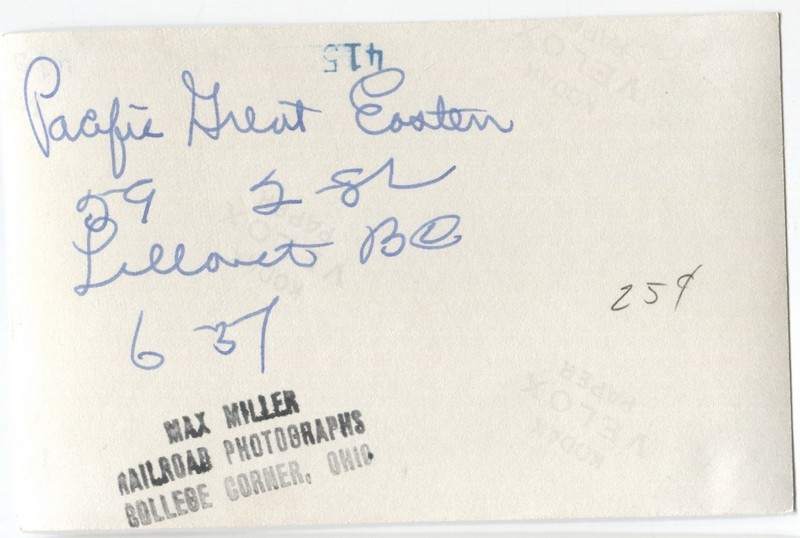 415
Pacific Great Eastern
59 2-8-2
Lillooet BC
6 37
25¢
MAX MILLER
RAILROAD PHOTOGRAPHS
COLLEGE CORNER, OHIO
KODAK
VELOX
PAPER
KODAK
VELOX
PAPER
KODAK
VELOX
PAPER